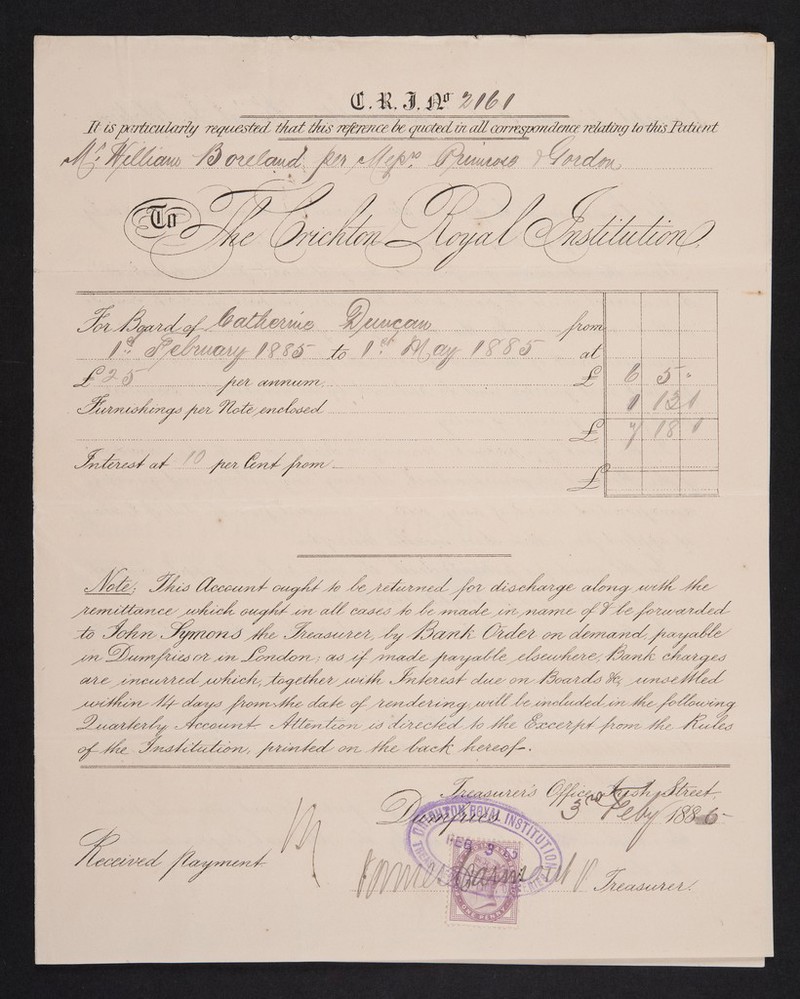 C.R.I. No 2161
It is particularly requested that this reference be quoted in all correspondence relating to this Patient
Mr William Boreland per Messrs Primrose & Gordon
To The Crichton Royal Institution.
For Board of Catherine Duncan from
1st February 1885 to 1st May 1885 at
£25 per annum, £ 6 5 "
Furnishings per Note enclosed 1 13 1
£ 7 18 1
Interest at 10 per Cent from
£
Note; This Account ought to be returned for discharge along with the
remittance which ought in all cases to be made in name of & be forwarded
to John Symons the Treasurer, by Bank Order on demand, payable
in Dumfries or in London; as if made payable elsewhere, Bank charges
are incurred which, together with Interest due on Boards &c, unsettled
within 14 days from the date of rendering, will be included in the following
Quarterly Account. Attention is directed to the Excerpt from the Rules
of the Institution, printed on the back hereof.
Treasurer's Office, Street
Dumfries 3rd Feby 1885
CRICHTON ROYAL INSTITUTION
FEB 3 85
Received Payment
Treasurer.
ONE PENNY